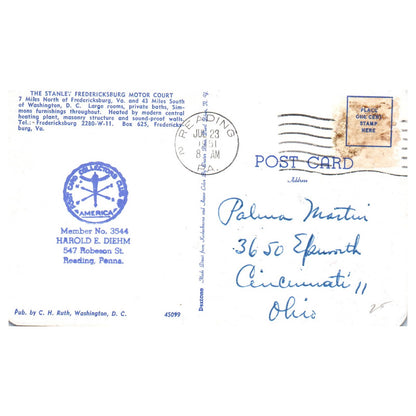 THE STANLEY FREDERICKSBURG MOTOR COURT
7 Miles North of Fredericksburg, Va. and 43 Miles South
of Washington, D. C. Large rooms, private baths, Sim-
mons furnishings throughout. Heated by modern central
heating plant, masonry structure and sound-proof walls.
Tel.: Fredericksburg 2280-W-11. Box 625, Fredericks-
burg, Va.
POST CARD COLLECTORS CLUB OF
AMERICA
Member No. 3544
HAROLD E. DIEHM
547 Robeson St.
Reading, Penna.
Pub. by C. H. Ruth, Washington, D. C.
45099
READING
2
JUL 23
8 AM
PA.
PLACE
ONE CENT
STAMP
HERE
POST CARD
Address
Palma Martin
3650 Epworth
Cincinnati 11
Ohio
25